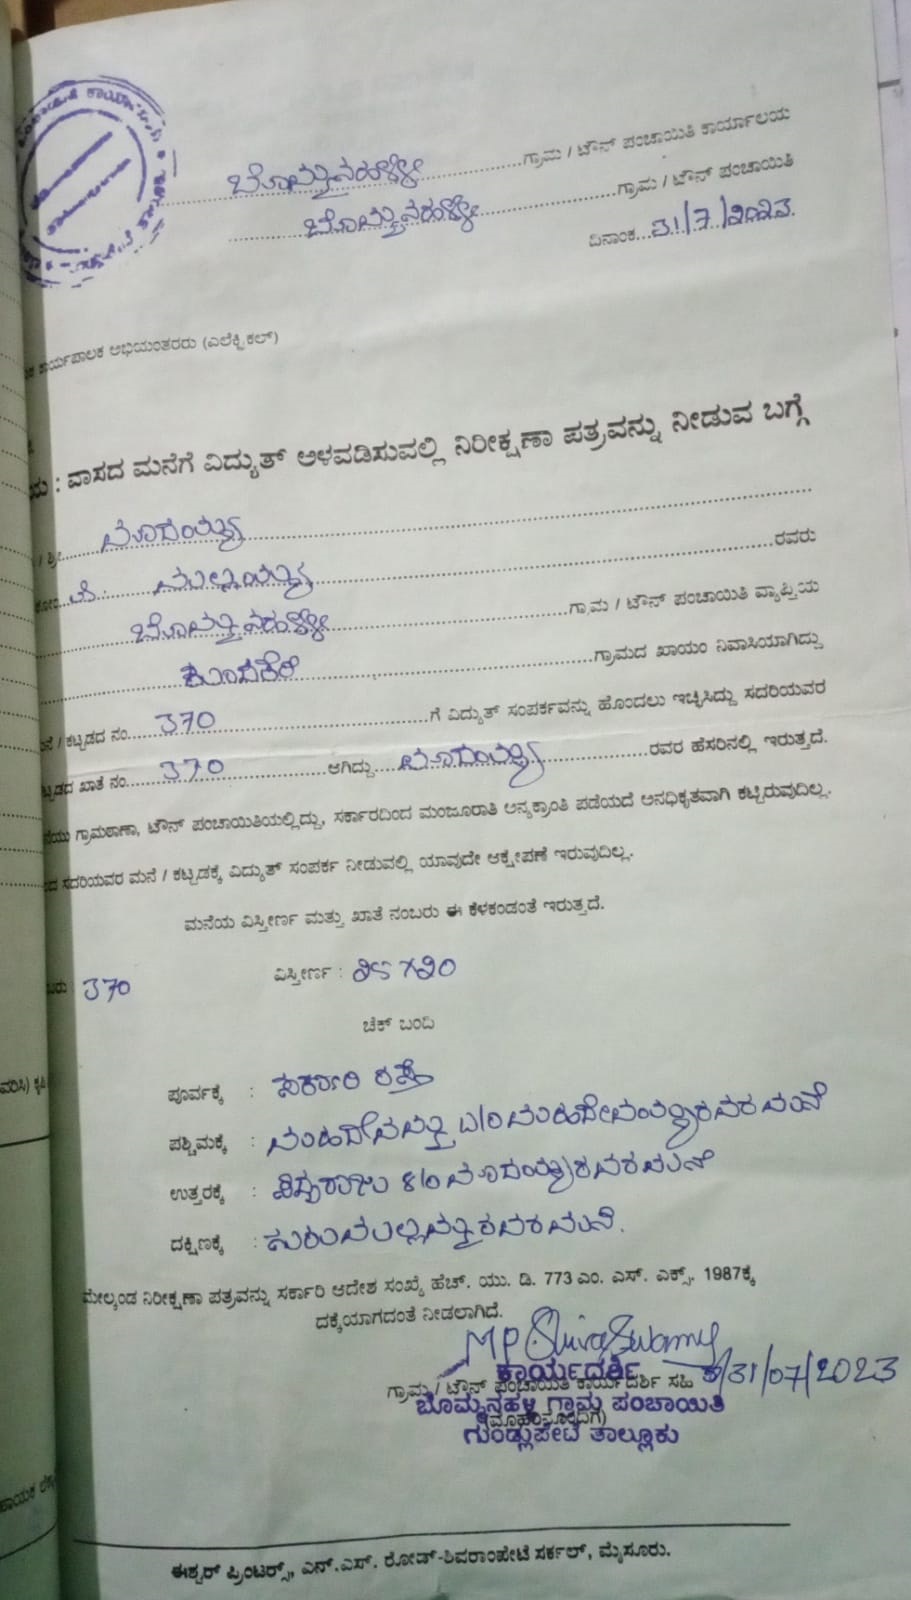 ಬೊಮ್ಮನಹಳ್ಳಿ ಗ್ರಾಮ / ಟೌನ್ ಪಂಚಾಯಿತಿ ಕಾರ್ಯಾಲಯ
ಬೊಮ್ಮನಹಳ್ಳಿ ಗ್ರಾಮ / ಟೌನ್ ಪಂಚಾಯಿತಿ
ದಿನಾಂಕ...31/7/೨೦೨೩.
ಕಾರ್ಯಪಾಲಕ ಅಭಿಯಂತರರು (ಎಲೆಕ್ಟ್ರಿಕಲ್)
: ವಾಸದ ಮನೆಗೆ ವಿದ್ಯುತ್ ಅಳವಡಿಸುವಲ್ಲಿ ನಿರೀಕ್ಷಣಾ ಪತ್ರವನ್ನು ನೀಡುವ ಬಗ್ಗೆ
/ ಶ್ರೀ. ಮಾದಯ್ಯ
ಮಲ್ಲಯ್ಯ ರವರು
ಬೊಮ್ಮನಹಳ್ಳಿ ಗ್ರಾಮ / ಟೌನ್ ಪಂಚಾಯಿತಿ ವ್ಯಾಪ್ತಿಯ
ಗ್ರಾಮದ ಖಾಯಂ ನಿವಾಸಿಯಾಗಿದ್ದು
/ ಕಟ್ಟಡದ ನಂ. 370 ಗೆ ವಿದ್ಯುತ್ ಸಂಪರ್ಕವನ್ನು ಹೊಂದಲು ಇಚ್ಛಿಸಿದ್ದು ಸದರಿಯವರ
ಖಾತೆ ನಂ. 370 ಆಗಿದ್ದು ಮಾದಯ್ಯ ರವರ ಹೆಸರಿನಲ್ಲಿ ಇರುತ್ತದೆ.
ಗ್ರಾಮಠಾಣಾ, ಟೌನ್ ಪಂಚಾಯಿತಿಯಲ್ಲಿದ್ದು, ಸರ್ಕಾರದಿಂದ ಮಂಜೂರಾತಿ ಅನ್ಯಕ್ರಾಂತಿ ಪಡೆಯದೆ ಅನಧಿಕೃತವಾಗಿ ಕಟ್ಟಿರುವುದಿಲ್ಲ.
ಸದರಿಯವರ ಮನೆ / ಕಟ್ಟಡಕ್ಕೆ ವಿದ್ಯುತ್ ಸಂಪರ್ಕ ನೀಡುವಲ್ಲಿ ಯಾವುದೇ ಆಕ್ಷೇಪಣೆ ಇರುವುದಿಲ್ಲ.
ಮನೆಯ ವಿಸ್ತೀರ್ಣ ಮತ್ತು ಖಾತೆ ನಂಬರು ಈ ಕೆಳಕಂಡಂತೆ ಇರುತ್ತದೆ.
370 ವಿಸ್ತೀರ್ಣ :
ಚೆಕ್ ಬಂದಿ
ಪೂರ್ವಕ್ಕೆ : ಸರ್ಕಾರಿ ರಸ್ತೆ
ಪಶ್ಚಿಮಕ್ಕೆ : ಮಹದೇವಮ್ಮ ಮಹದೇವಯ್ಯರವರ ಮನೆ
ಉತ್ತರಕ್ಕೆ : ಮಾದಯ್ಯರವರ ಮನೆ
ದಕ್ಷಿಣಕ್ಕೆ : ಗುರುಮಲ್ಲಮ್ಮರವರ ಮನೆ.
ಮೇಲ್ಕಂಡ ನಿರೀಕ್ಷಣಾ ಪತ್ರವನ್ನು ಸರ್ಕಾರಿ ಆದೇಶ ಸಂಖ್ಯೆ ಹೆಚ್. ಯು. ಡಿ. 773 ಎಂ. ಎಸ್. ಎಕ್ಸ್. 1987ಕ್ಕೆ
ದಕ್ಕೆಯಾಗದಂತೆ ನೀಡಲಾಗಿದೆ.
MP Shiva Swamy
ಕಾರ್ಯದರ್ಶಿ 31/07/2023
ಗ್ರಾಮ / ಟೌನ್ ಪಂಚಾಯಿತಿ ಕಾರ್ಯದರ್ಶಿ ಸಹಿ
ಬೊಮ್ಮನಹಳ್ಳಿ ಗ್ರಾಮ ಪಂಚಾಯಿತಿ
(ಮೊಹರಿನೊಂದಿಗೆ)
ಗುಂಡ್ಲುಪೇಟೆ ತಾಲ್ಲೂಕು
ಈಶ್ವರ್ ಪ್ರಿಂಟರ್ಸ್, ಎನ್.ಎಸ್. ರೋಡ್-ಶಿವರಾಂಪೇಟೆ ಸರ್ಕಲ್, ಮೈಸೂರು.